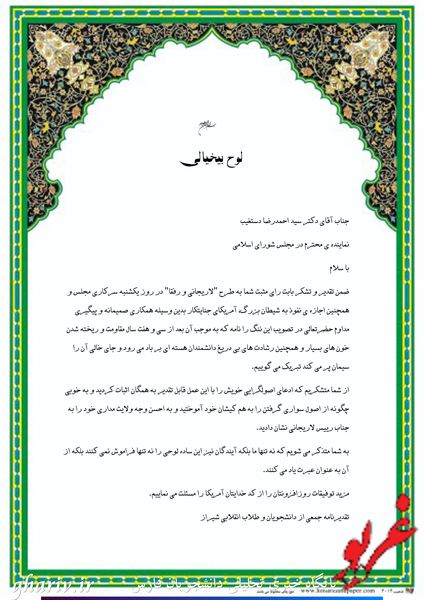 لوح بیخیالی
جناب آقای دکتر سید احمدرضا دستغیب
نماینده ی محترم در مجلس شورای اسلامی
با سلام
ضمن تقدیر و تشکر بابت رای مثبت شما به طرح "لاریجانی و رفقا" در روز یکشنبه سرکاری مجلس و
همچنین اجازه ی نفوذ به شیطان بزرگ، آمریکای جنایتکار بدین وسیله همکاری صمیمانه و پیگیری
مداوم حضرتعالی در تصویب این ننگ را نامه که به موجب آن بعد از سی و هفت سال مقاومت و ریخته شدن
خون های بسیار و همچنین رشادت های بی دریغ دانشمندان هسته ای بر باد می رود و جای خالی آن را
سیمان پر می کند تبریک می گوییم.
از شما متشکریم که ادعای اصولگرایی خویش را با این عمل قابل تقدیر به همگان اثبات کردید و به خوبی
چگونه از اصول سواری گرفتن را به هم کیشان خود آموختید و به احسن وجه ولایت مداری خود را به
جناب رییس لاریجانی نشان دادید.
به شما متذکر می شویم که نه تنها ما بلکه آیندگان نیز این ساده لوحی را نه تنها فراموش نمی کنند بلکه از
آن به عنوان عبرت یاد می کنند.
مزید توفیقات روزافزونتان را از کد خدایتان آمریکا را مسئلت می نماییم.
تقدیرنامه جمعی از دانشجویان و طلاب انقلابی شیراز
غریو
ghariv.ir
پایگاه خبری تحلیلی دانشجویان فارس